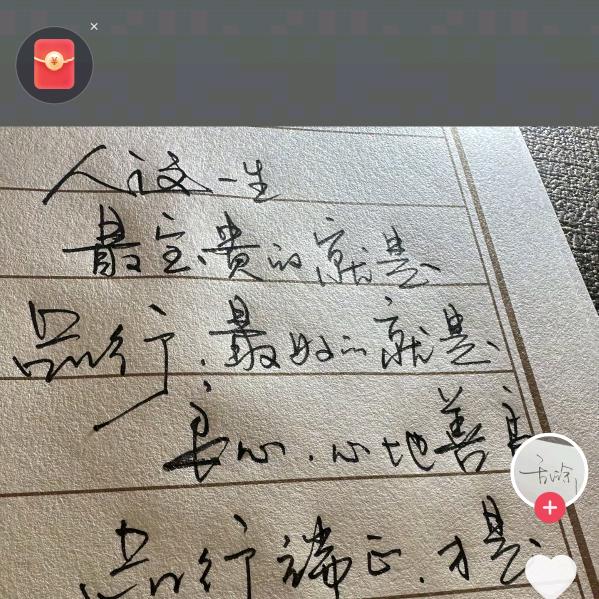 人这一生
最宝贵的就是
品行，最好的就是
良心，心地善良
品行端正，才是